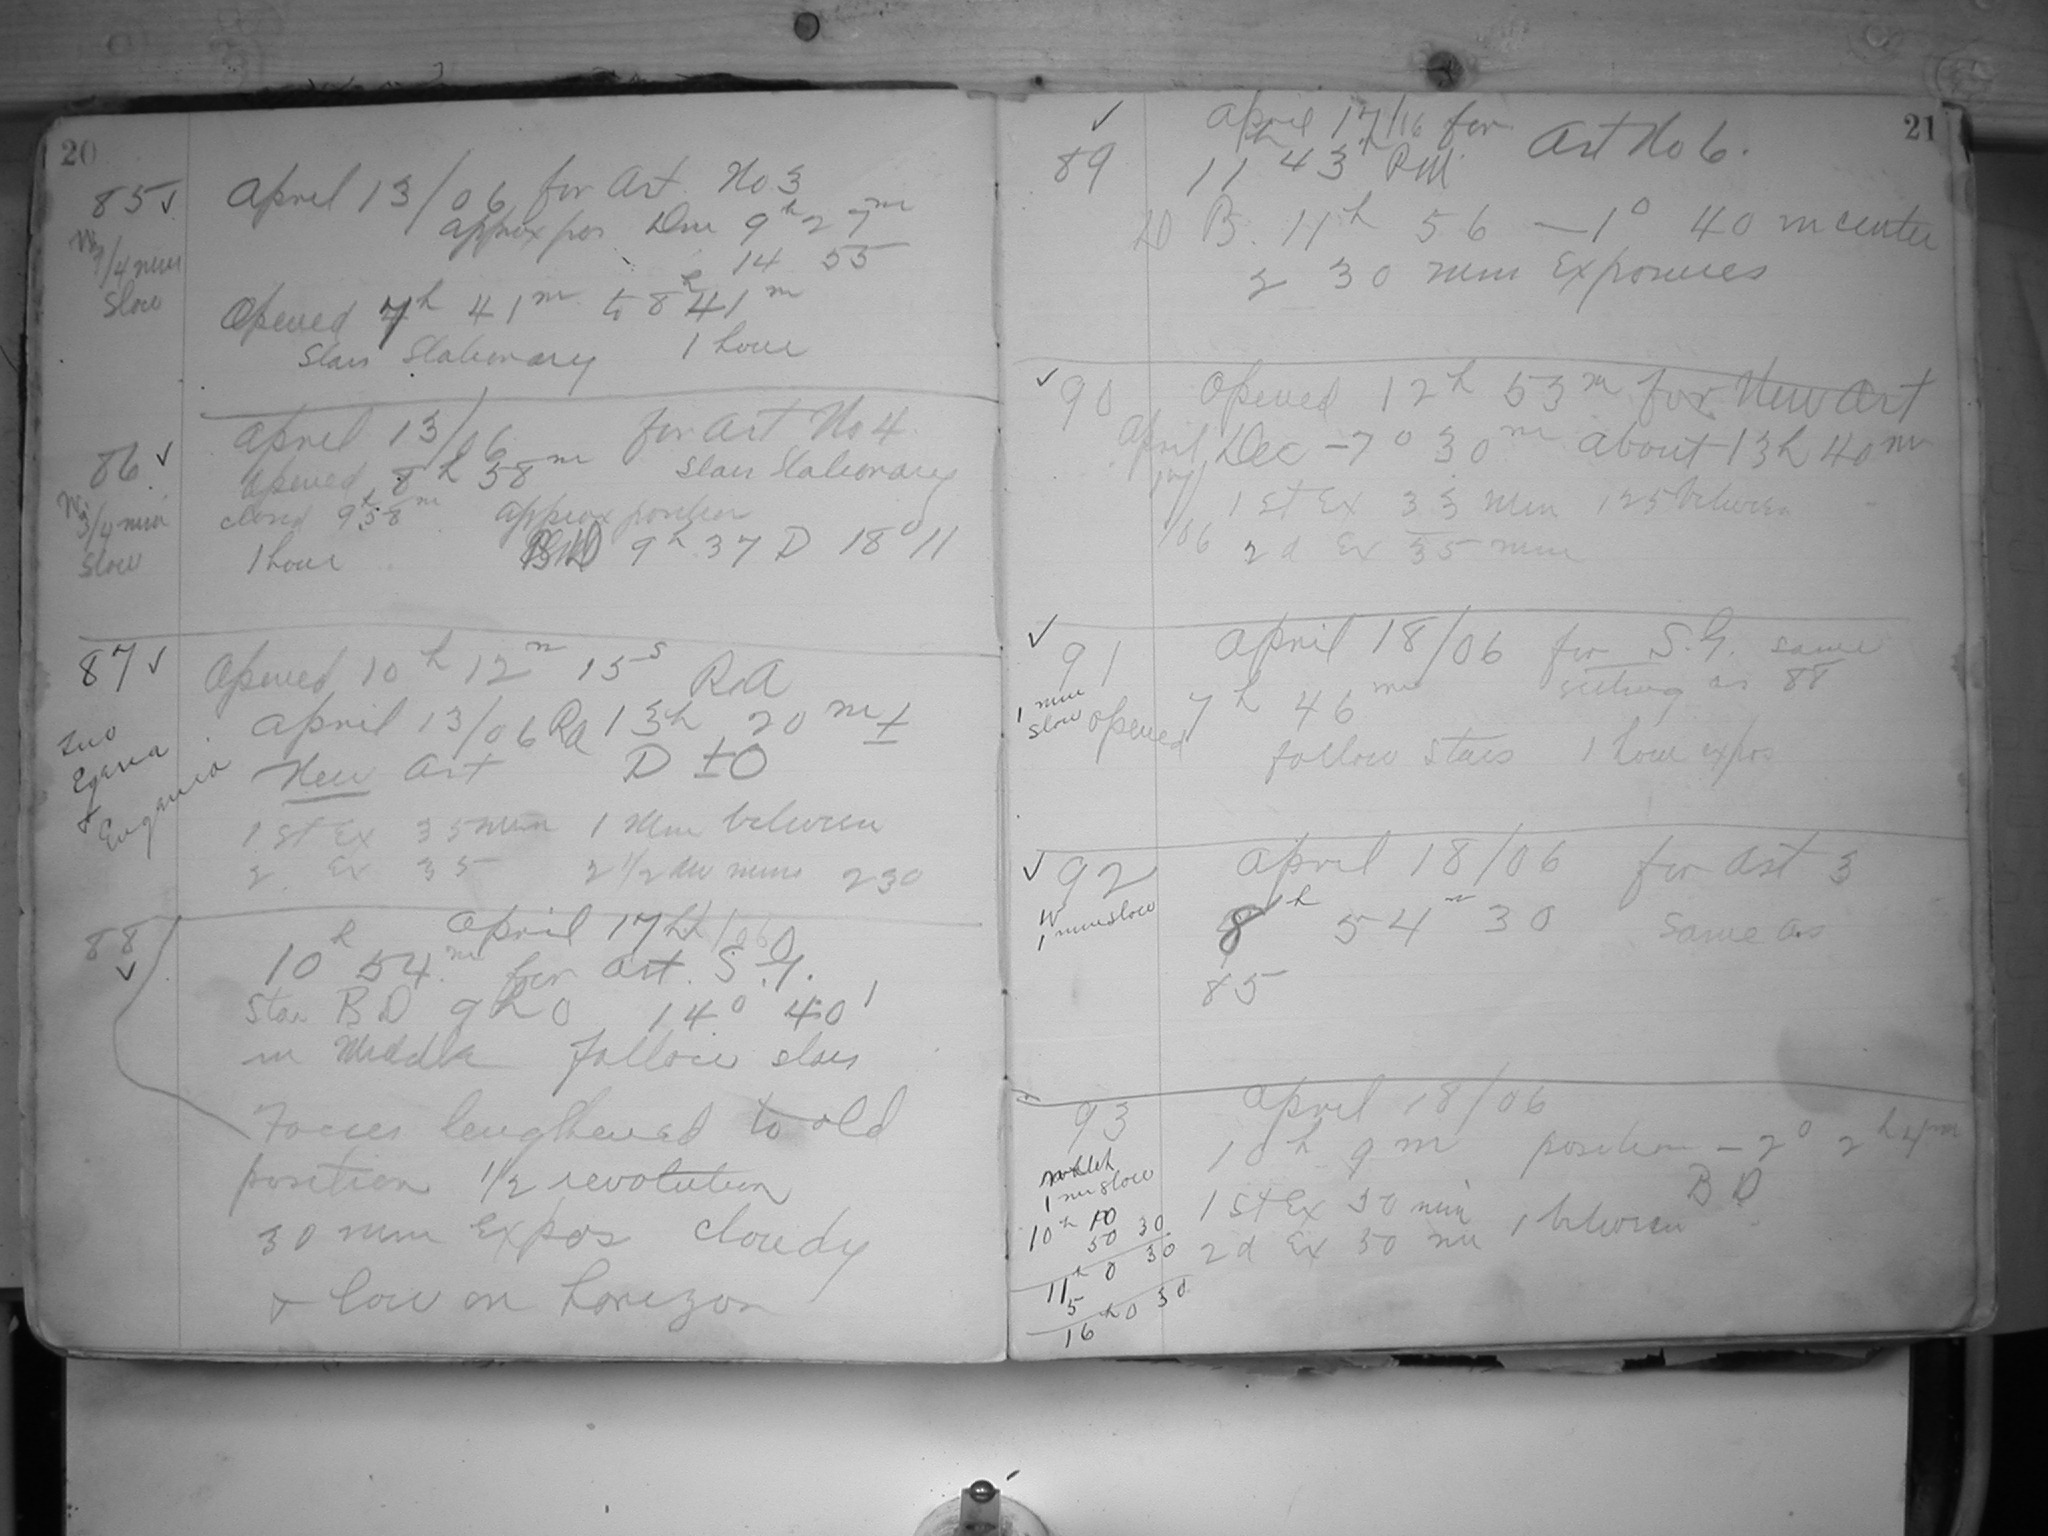 20
85 ✓
April 13/06 for Ast. No 3
approx pos 9h 27m
14 55
W 3/4 min slow
Opened 7h 41m to 8h 41m
Stars Stationary 1 hour
86 ✓
April 13/06 for Ast No 4
Opened 8h 58m Stars Stationary
closed 9h 58m approx position
W. 3/4 min slow
1 hour BD 9h 37 D 18° 11
87 ✓
Opened 10h 12m 15s R.A
April 13/06 Ra 13h 20m ±
New Ast D ±0
Egeria
& Eugenia
1st Ex 35 min 1 min between
2. Ex 35 2 1/2 mins 230
88 ✓
April 17th/06
10h 54m for Ast. S.G.
Star BD 9h 0 14° 40'
in Middle follow stars
Focus lengthened to old
position 1/2 revolution
30 min Expos cloudy
& low on horizon
21
✓
89
April 17/06 for Ast No 6.
11h 43 PM
B. 11h 56 —1° 40 m center
2 30 min Exposures
✓ 90
Opened 12h 53m for New Ast
April 17/06
Dec -7° 30m about 13h 40m
1st Ex 35 min 125 between
2d Ex 35 min
✓
91
April 18/06 for S.G. same
setting as 88
1 min slow
opened 7h 46m
follow stars 1 hour expos
✓ 92
April 18/06 for Ast 3
W 1 min slow
8h 54m 30 Same as
85
93
April 18/06
10h 9m position -2° 2h 4m
BD
watch
1 m slow
1st Ex 30 min 1 between
2d Ex 30 min
10h 10
50 30
11h 0 30
5
16h 0 30